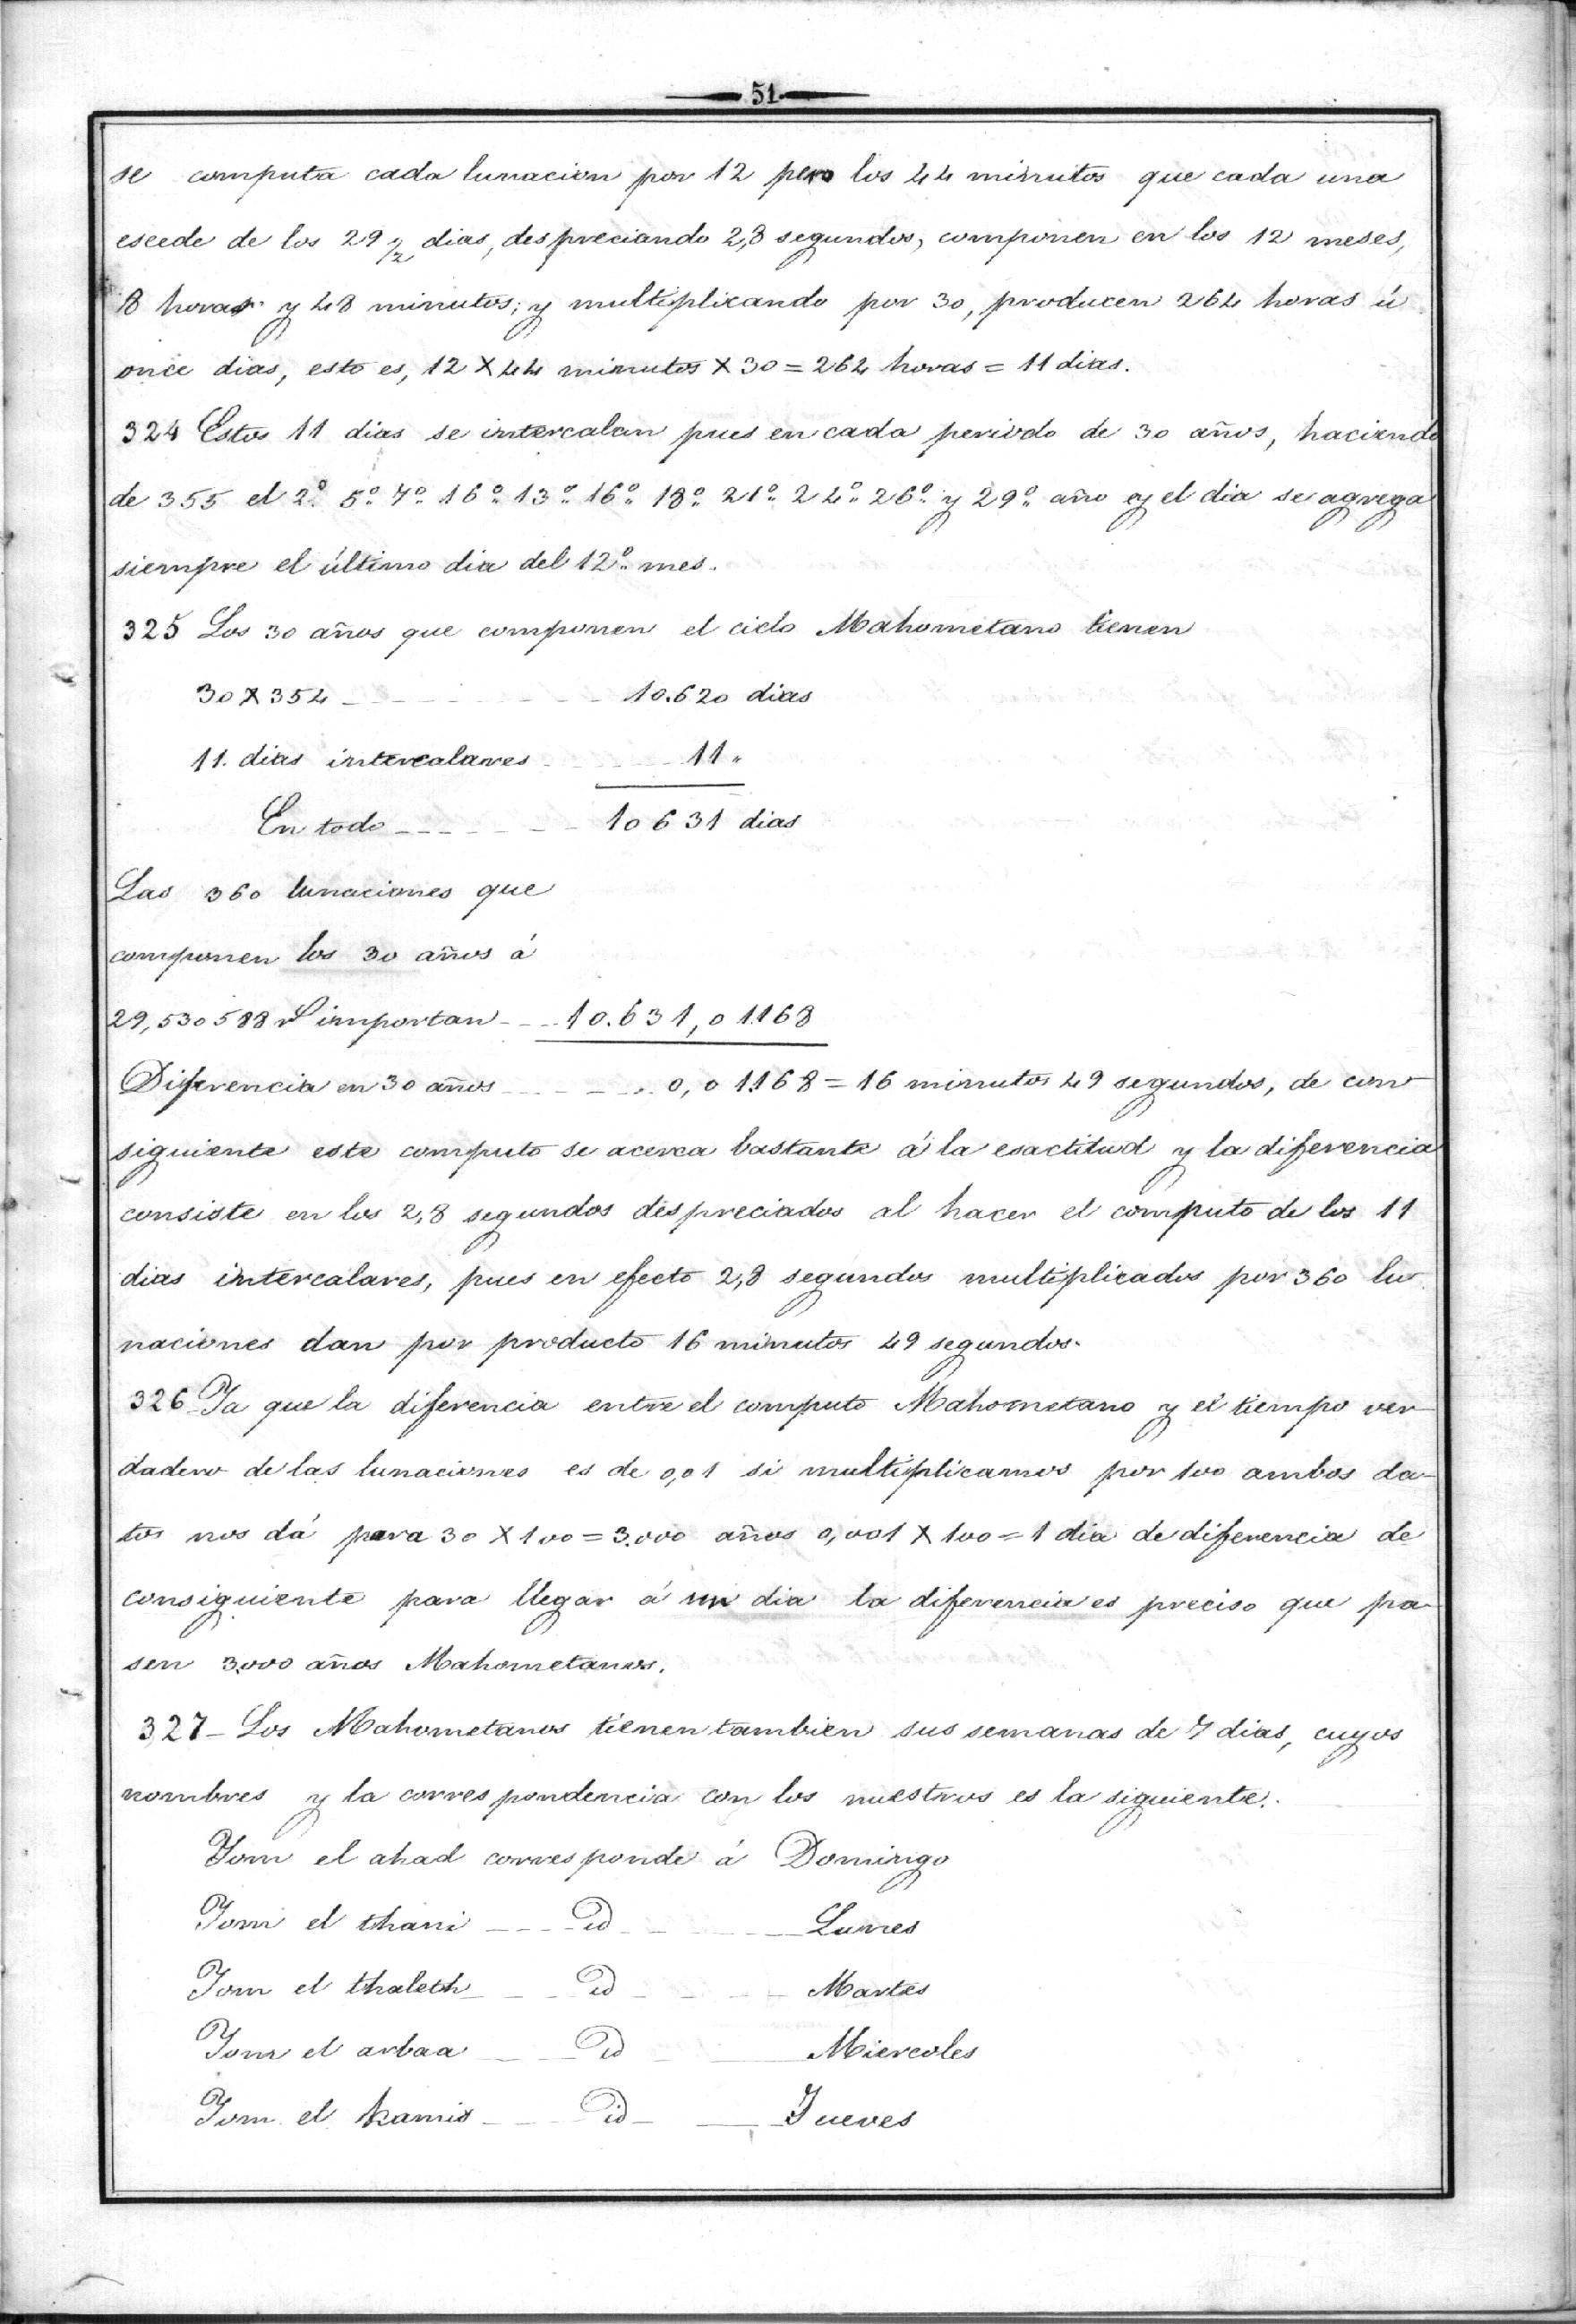 51
se computa cada lunacion por 12 pero los 44 minutos que cada una
escede de los 29 ½ dias, despreciando 2,8 segundos, componen en los 12 meses,
8 horas y 48 minutos; y multiplicando por 30, producen 264 horas ú
once dias, esto es, 12 X 44 minutos X 30 = 264 horas = 11 dias.
324 Estos 11 dias se intercalan pues en cada periodo de 30 años, haciendo
de 355 el 2º 5º 7º 16º 13º 16º 18º 21º 24º 26º y 29º año y el dia se agrega
siempre el último dia del 12º mes.
325 Los 30 años que componen el ciclo Mahometano tienen
30 X 354 - - - - - - - 10.620 dias
11. dias intercalares - - - - 11 "
En todo - - - - - - 10631 dias
Las 360 lunaciones que
componen los 30 años á
29,530588 importan - - - 10.631,01168
Diferencia en 30 años - - - - - 0,01168 = 16 minutos 49 segundos, de con-
siguiente este computo se acerca bastante á la esactitud y la diferencia
consiste en los 2,8 segundos despreciados al hacer el computo de los 11
dias intercalares, pues en efecto 2,8 segundos multiplicados por 360 lu-
naciones dan por producto 16 minutos 49 segundos.
326 Ya que la diferencia entre el computo Mahometano y el tiempo ver-
dadero de las lunaciones es de 0,01 si multiplicamos por 100 ambos da-
tos nos dá para 30 X 100 = 3.000 años 0,001 X 100 = 1 dia de diferencia de
consiguiente para llegar á un dia la diferencia es preciso que pa-
sen 3.000 años Mahometanos.
327 - Los Mahometanos tienen tambien sus semanas de 7 dias, cuyos
nombres y la correspondencia con los nuestros es la siguiente.
Yom el ahad corresponde á Domingo
Yom el thani - - - - Id - - - - Lunes
Yom el thaleth - - - Id - - - - Martes
Yom el arbaa - - - Id - - - Miercoles
Yom el kamis - - - Id - - - Jueves